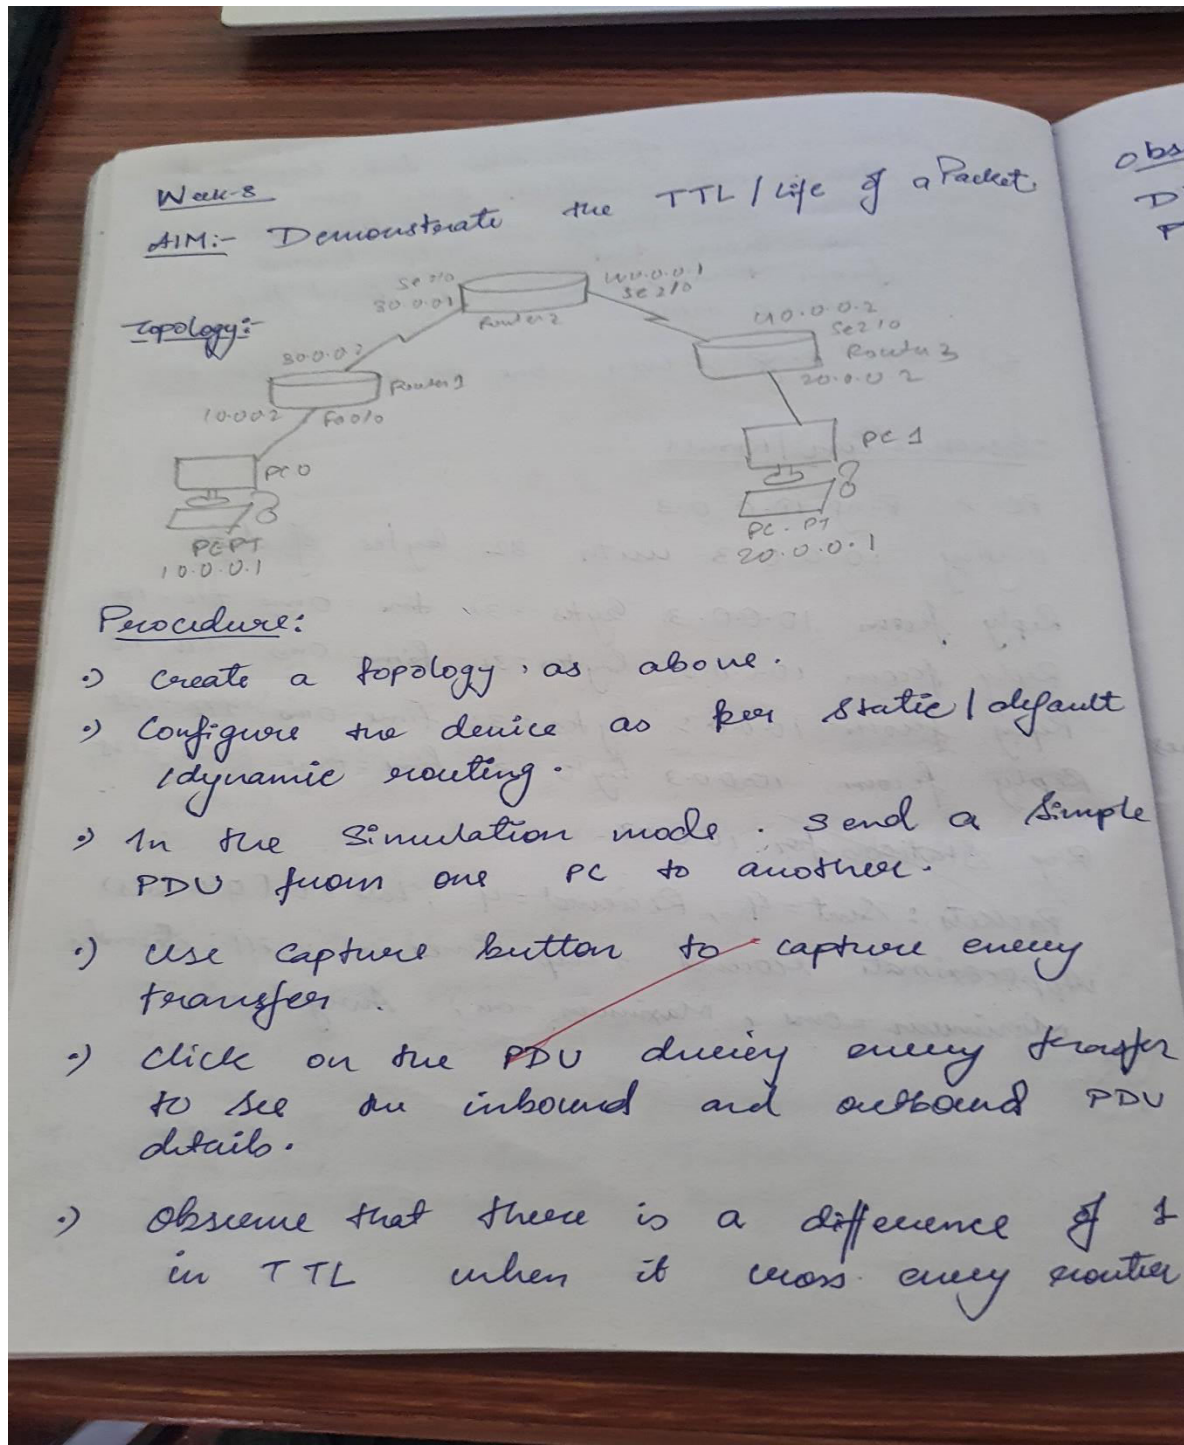 Week-8
AIM:- Demonstrate the TTL / Life of a Packet.
Topology:-
Se 2/0
30.0.0.1
Router 2
40.0.0.1
Se 2/0
40.0.0.2
Se 2/0
Router 3
20.0.0.2
30.0.0.2
Router 1
10.0.0.2
Fa 0/0
PC 0
PC-PT
10.0.0.1
PC 1
PC-PT
20.0.0.1
Procedure:
Create a topology as above.
Configure the device as per static / default
/dynamic routing.
In the Simulation mode. Send a Simple
PDU from one PC to another.
Use capture button to capture every
transfer.
Click on the PDU during every transfer
to see the inbound and outbound PDU
details.
Observe that there is a difference of 1
in TTL when it cross every router
Obs